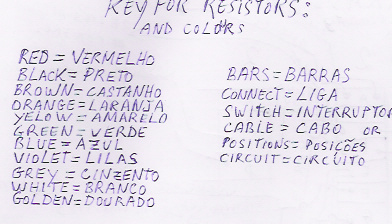 KEY FOR RESISTORS:
AND COLORS
RED = VERMELHO
BLACK = PRETO
BROWN = CASTANHO
ORANGE = LARANJA
YELOW = AMARELO
GREEN = VERDE
BLUE = AZUL
VIOLET = LILAS
GREY = CINZENTO
WHITE = BRANCO
GOLDEN = DOURADO
BARS = BARRAS
CONNECT = LIGA
SWITCH = INTERRUPTOR
CABLE = CABO OR
POSITIONS = POSIÇÕES
CIRCUIT = CIRCUITO